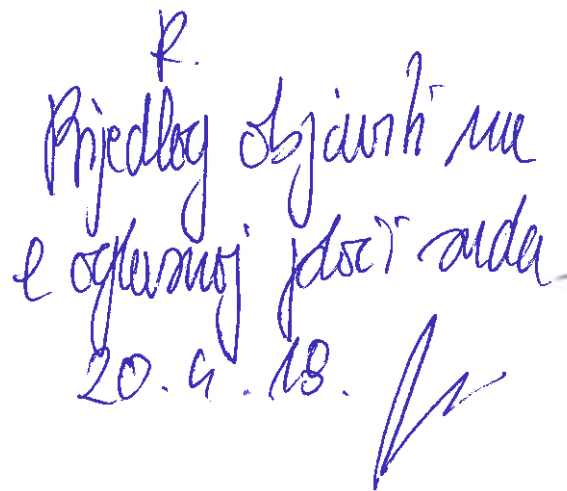 R.
Prijedlog objaviti na
e oglasnoj ploči suda
20. 4. 18.